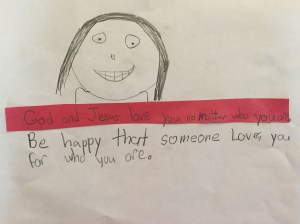 God and Jesus love you no matter who you are
Be happy that someone loves you
for who you are.